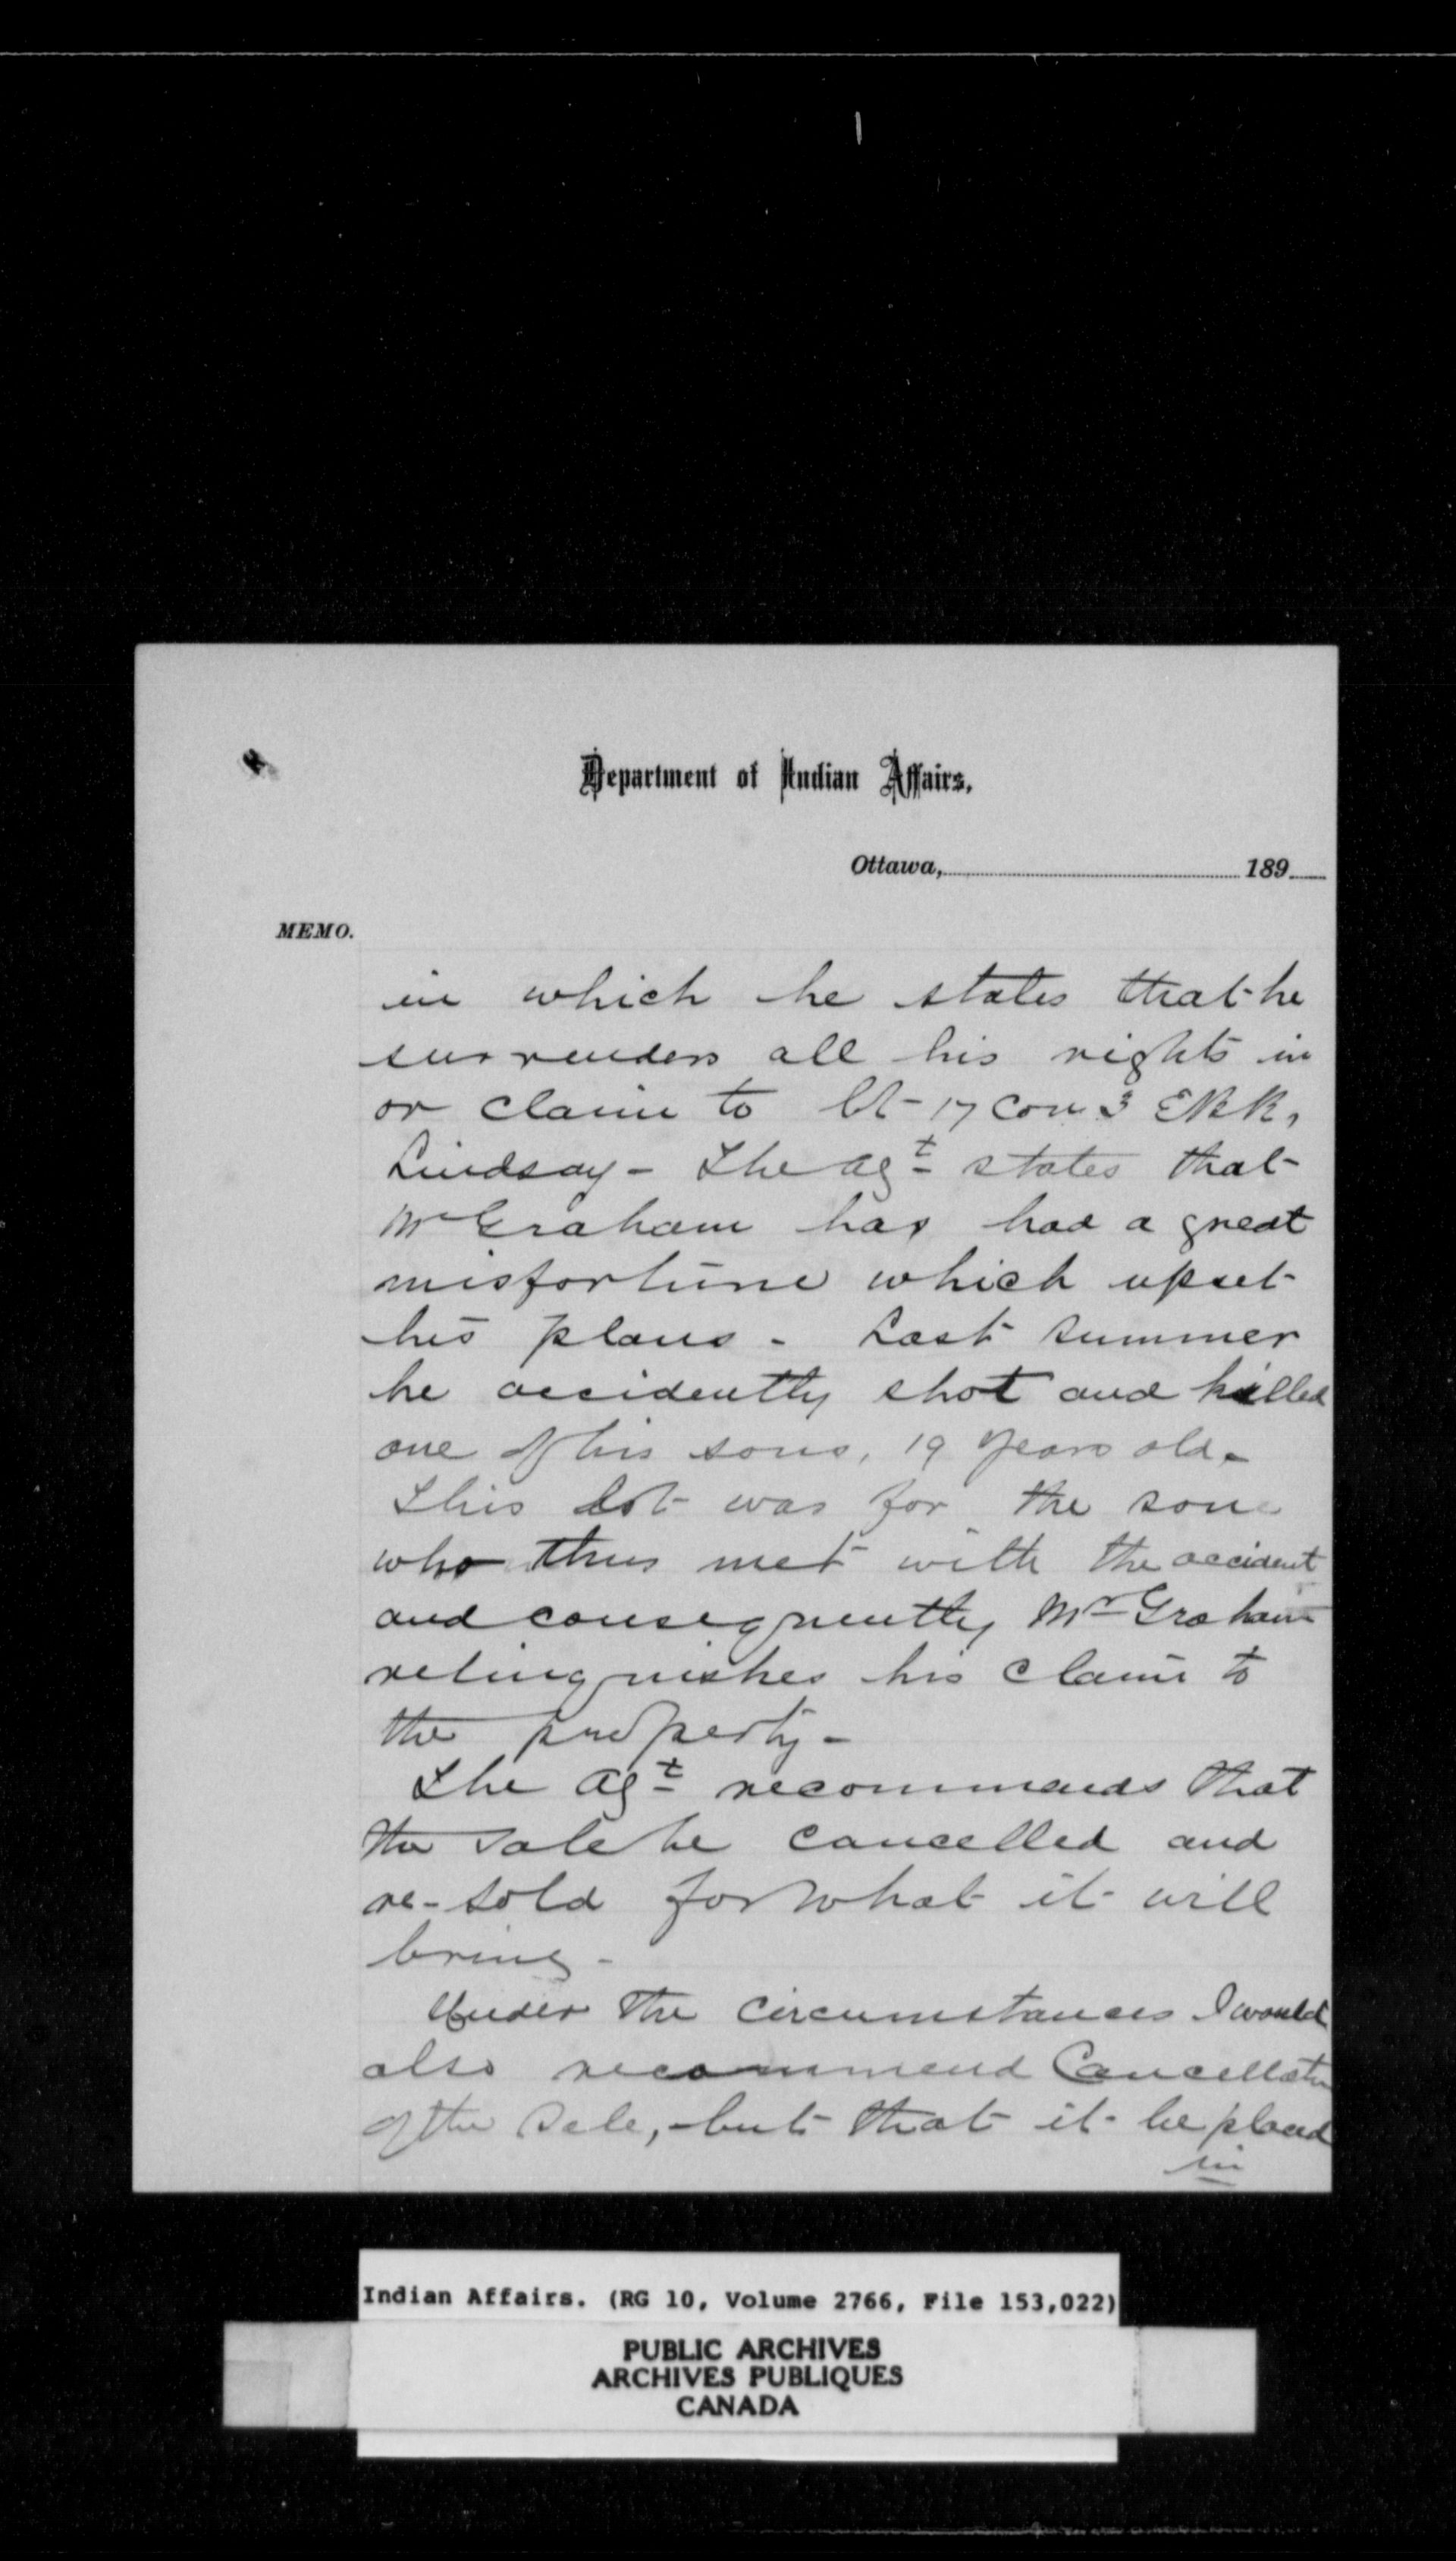 Department of Indian Affairs,
Ottawa, 189
MEMO.
in which he states that he
surrenders all his rights in
or claim to lot 17 Con 3 EBR,
Lindsay - The Agt states that
Mr Graham has had a great
misfortune which upset
his plans - Last summer
he accidently shot and killed
one of his sons, 19 years old.
This lot was for the son
who thus met with the accident
and consequently Mr Graham
relinquishes his claim to
the property -
The Agt recommends that
the sale be cancelled and
re-sold for what it will
bring -
Under the circumstances I would
also recommend Cancellatn
of the sale, but that it be placed
in
Indian Affairs. (RG 10, Volume 2766, File 153,022)
PUBLIC ARCHIVES
ARCHIVES PUBLIQUES
CANADA